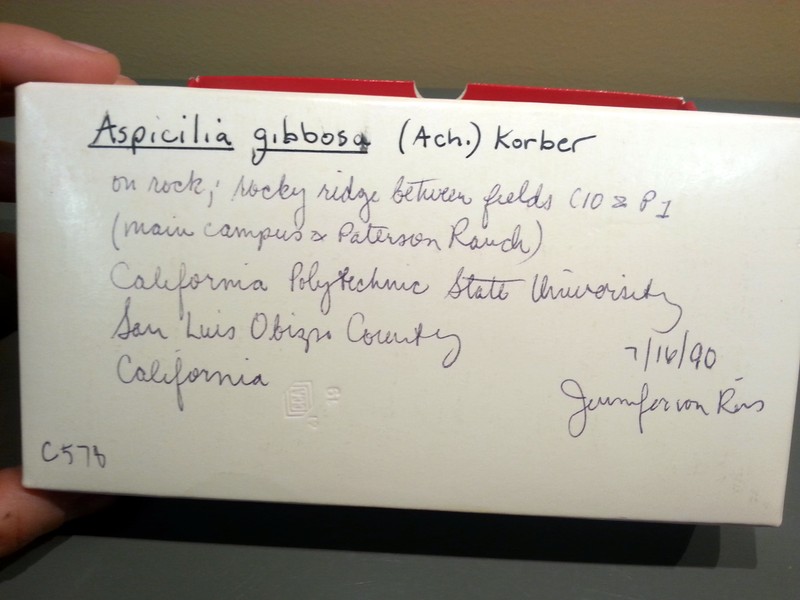 Aspicilia gibbosa (Ach.) Korber
on rock; rocky ridge between fields C10 & P1
(main campus & Paterson Ranch)
California Polytechnic State University
San Luis Obispo County
California
7/16/90
Jennifer von
C578